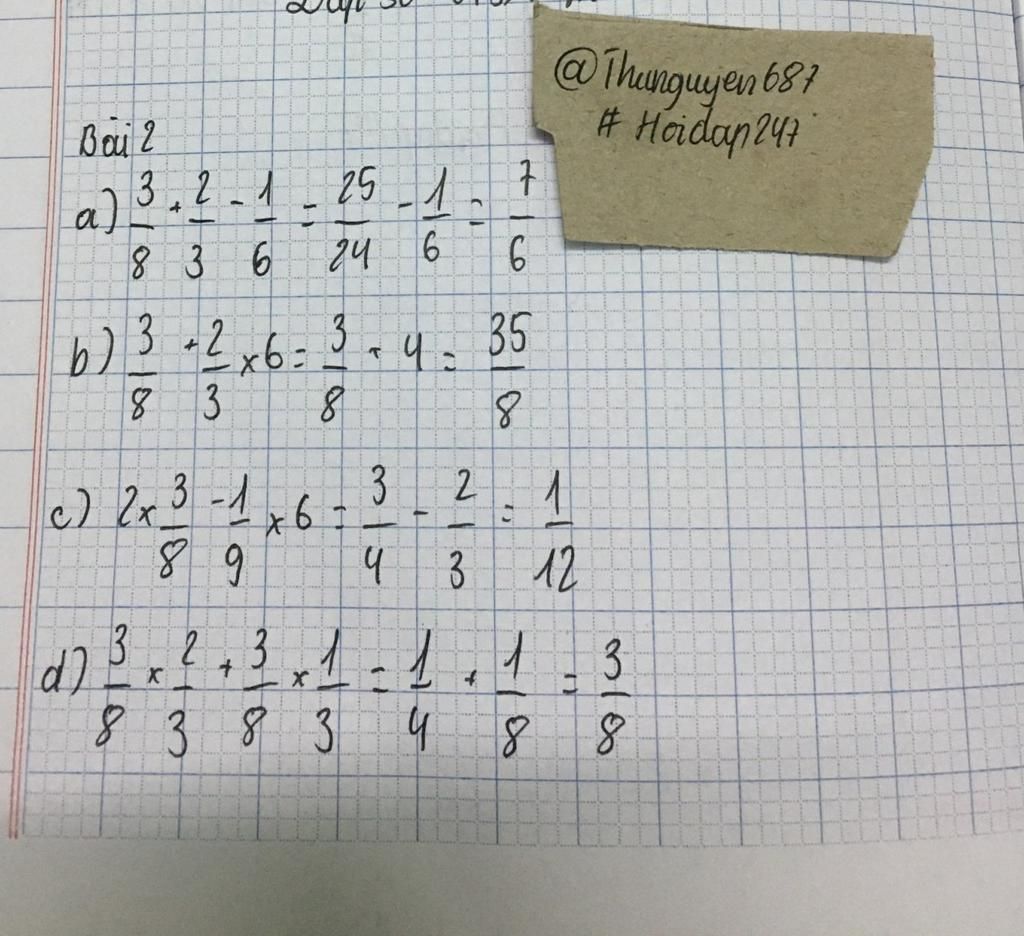 @Thunguyen687
# Hoidap247
Bài 2
a) 3/8 + 2/3 - 1/6 = 25/24 - 1/6 = 7/6
b) 3/8 + 2/3 x 6 = 3/8 + 4 = 35/8
c) 2 x 3/8 - 1/9 x 6 = 3/4 - 2/3 = 1/12
d) 3/8 x 2/3 + 3/8 x 1/3 = 1/4 + 1/8 = 3/8